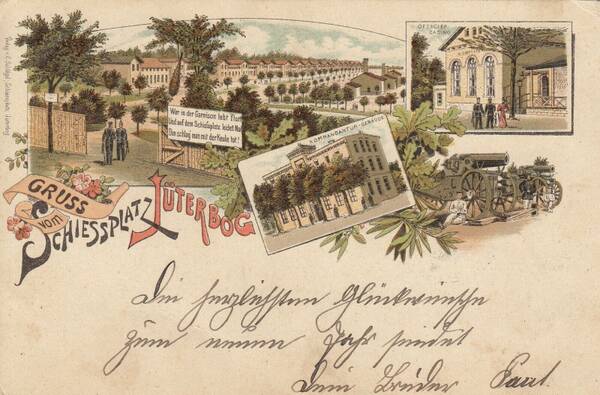 OFFICIER CASINO
Wer in der Garnison lebt flott
Und auf dem Schießplatze leidet No
Den schlag man mit der Keule tot!
KOMMANDANTUR-GEBÄUDE
GRUSS
vom
SCHIESSPLATZ JÜTERBOG
Die herzlichsten Glückwünsche
zum neuen Jahr sendet
Dein Brüder Paul.